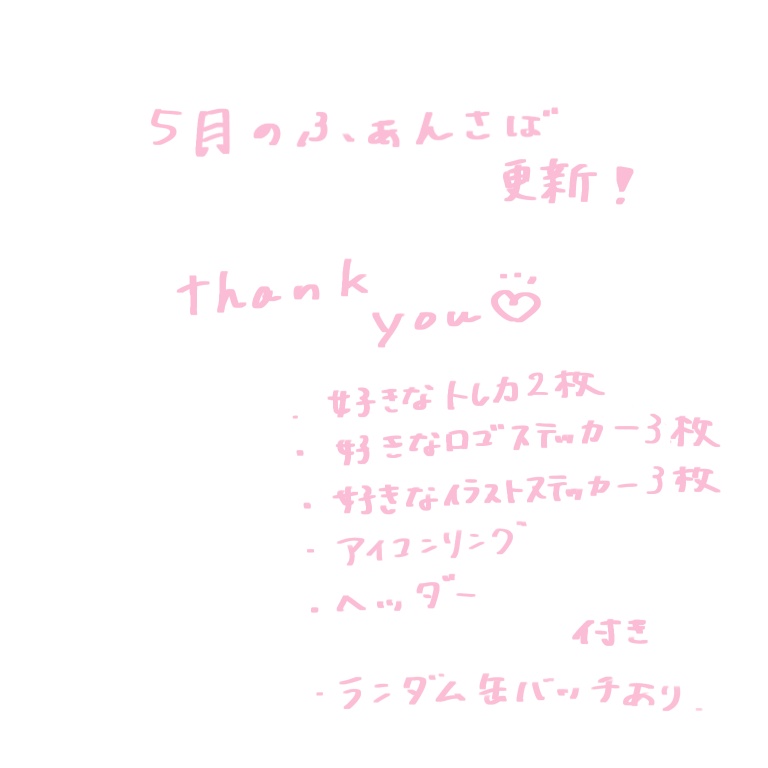 5月のふぁんさば
更新！
thank
you
・好きなトレカ2枚
・好きなロゴステッカー3枚
・好きなイラストステッカー3枚
・アイコンリング
・ヘッダー
付き
・ランダム缶バッチあり.